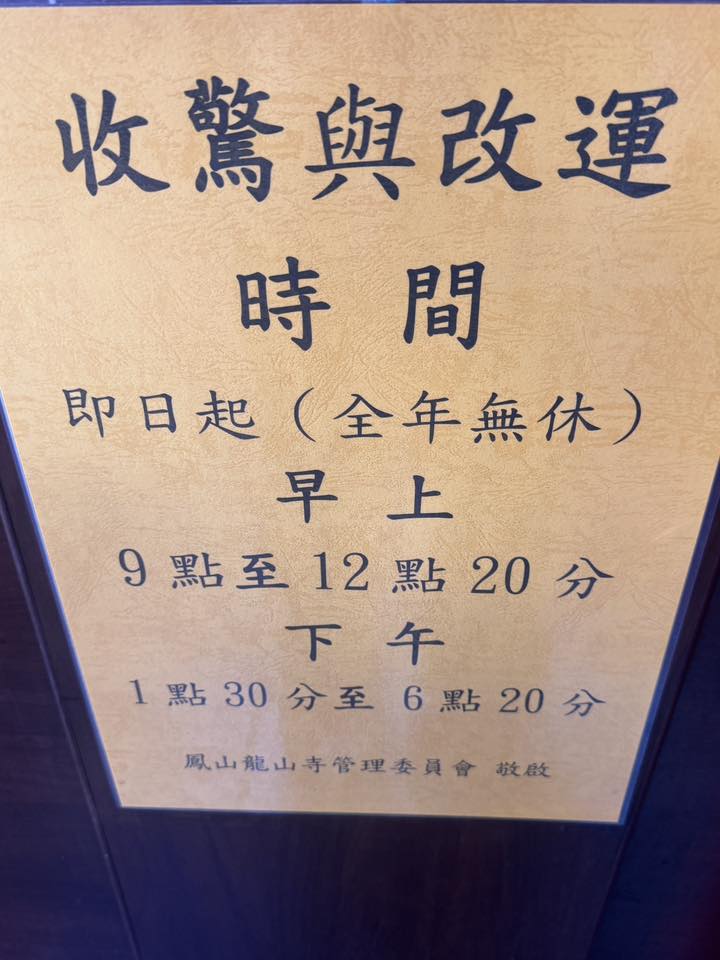 收驚與改運
時間
即日起（全年無休）
早上
9點至12點20分
下午
1點30分至6點20分
鳳山龍山寺管理委員會 敬啟